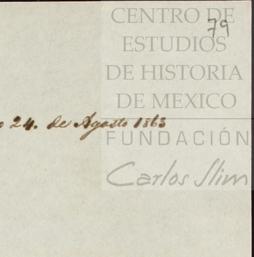 79
CENTRO DE
ESTUDIOS
DE HISTORIA
DE MEXICO
o 24. de Agosto 1863
FUNDACIÓN
Carlos Slim